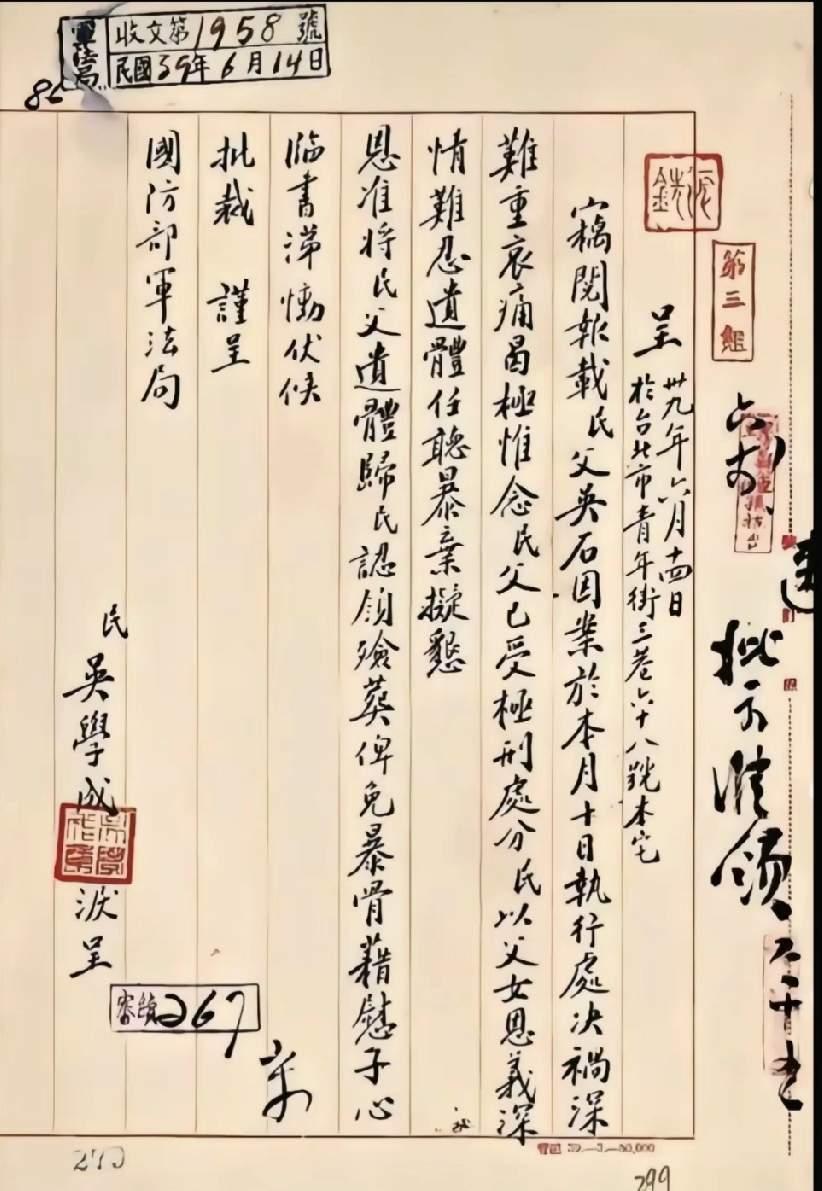 軍法局
收文第1958號
民國39年6月14日
第三組
批示准領
呈
卅九年六月十四日
於台北市青年街三巷六十八號本宅
竊閱報載民父吳石因業於本月十日執行處決禍深
難重哀痛曷極惟念民父已受極刑處分民以父女恩義深
情難忍遺體任聽暴棄擬懇
恩准將民父遺體歸民認領殮葬俾免暴骨藉慰子心
臨書涕慟伏候
批裁 謹呈
國防部軍法局
民 吳學成 淚呈
267
39.—3.—50,000
299